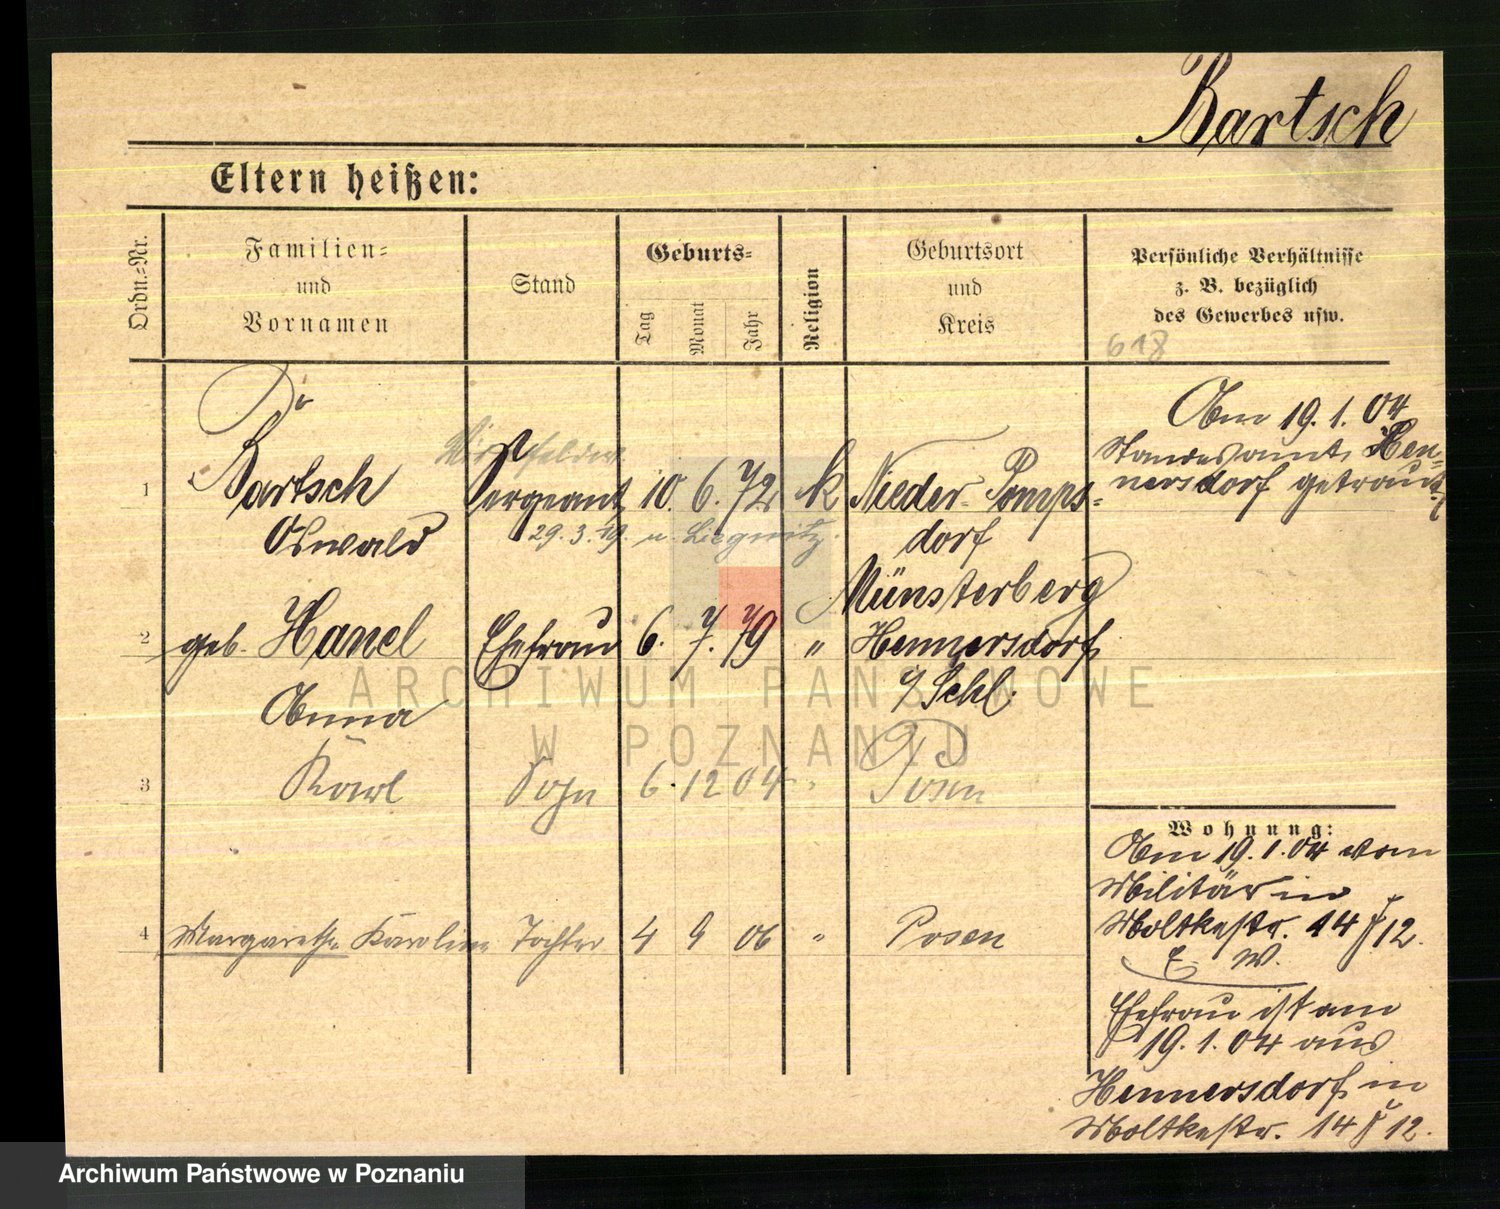 Bartsch
Eltern heißen:
Ordn.-Nr.
Familien-
und
Vornamen
Stand
Geburts-
Tag
Monat
Jahr
Religion
Geburtsort
und
Kreis
Persönliche Verhältnisse
z. B. bezüglich
des Gewerbes usw.
618
1
Bartsch
Oswald
Sergeant
10. 6. 72
k
Nieder-Pomps-
dorf
Münsterberg
29.3.19. n. Liegnitz.
Am 19.1.04
Standesamt Hen-
nersdorf getraut.
2
geb. Hanel
Anna
Ehefrau
6. 7. 79
"
Hennersdorf
i/Schl.
3
Karl
Sohn
6. 12 04
"
Posen
4
Margarethe Karoline
Tochter
4 9 06
"
Posen
Wohnung:
Am 19.1.04 vom
Militär in
Moltkestr. 14 12.
E. W.
Ehefrau ist am
19.1.04 aus
Hennersdorf in
Moltkestr. 14 12.
ARCHIWUM PAŃSTWOWE
W POZNANIU
Archiwum Państwowe w Poznaniu